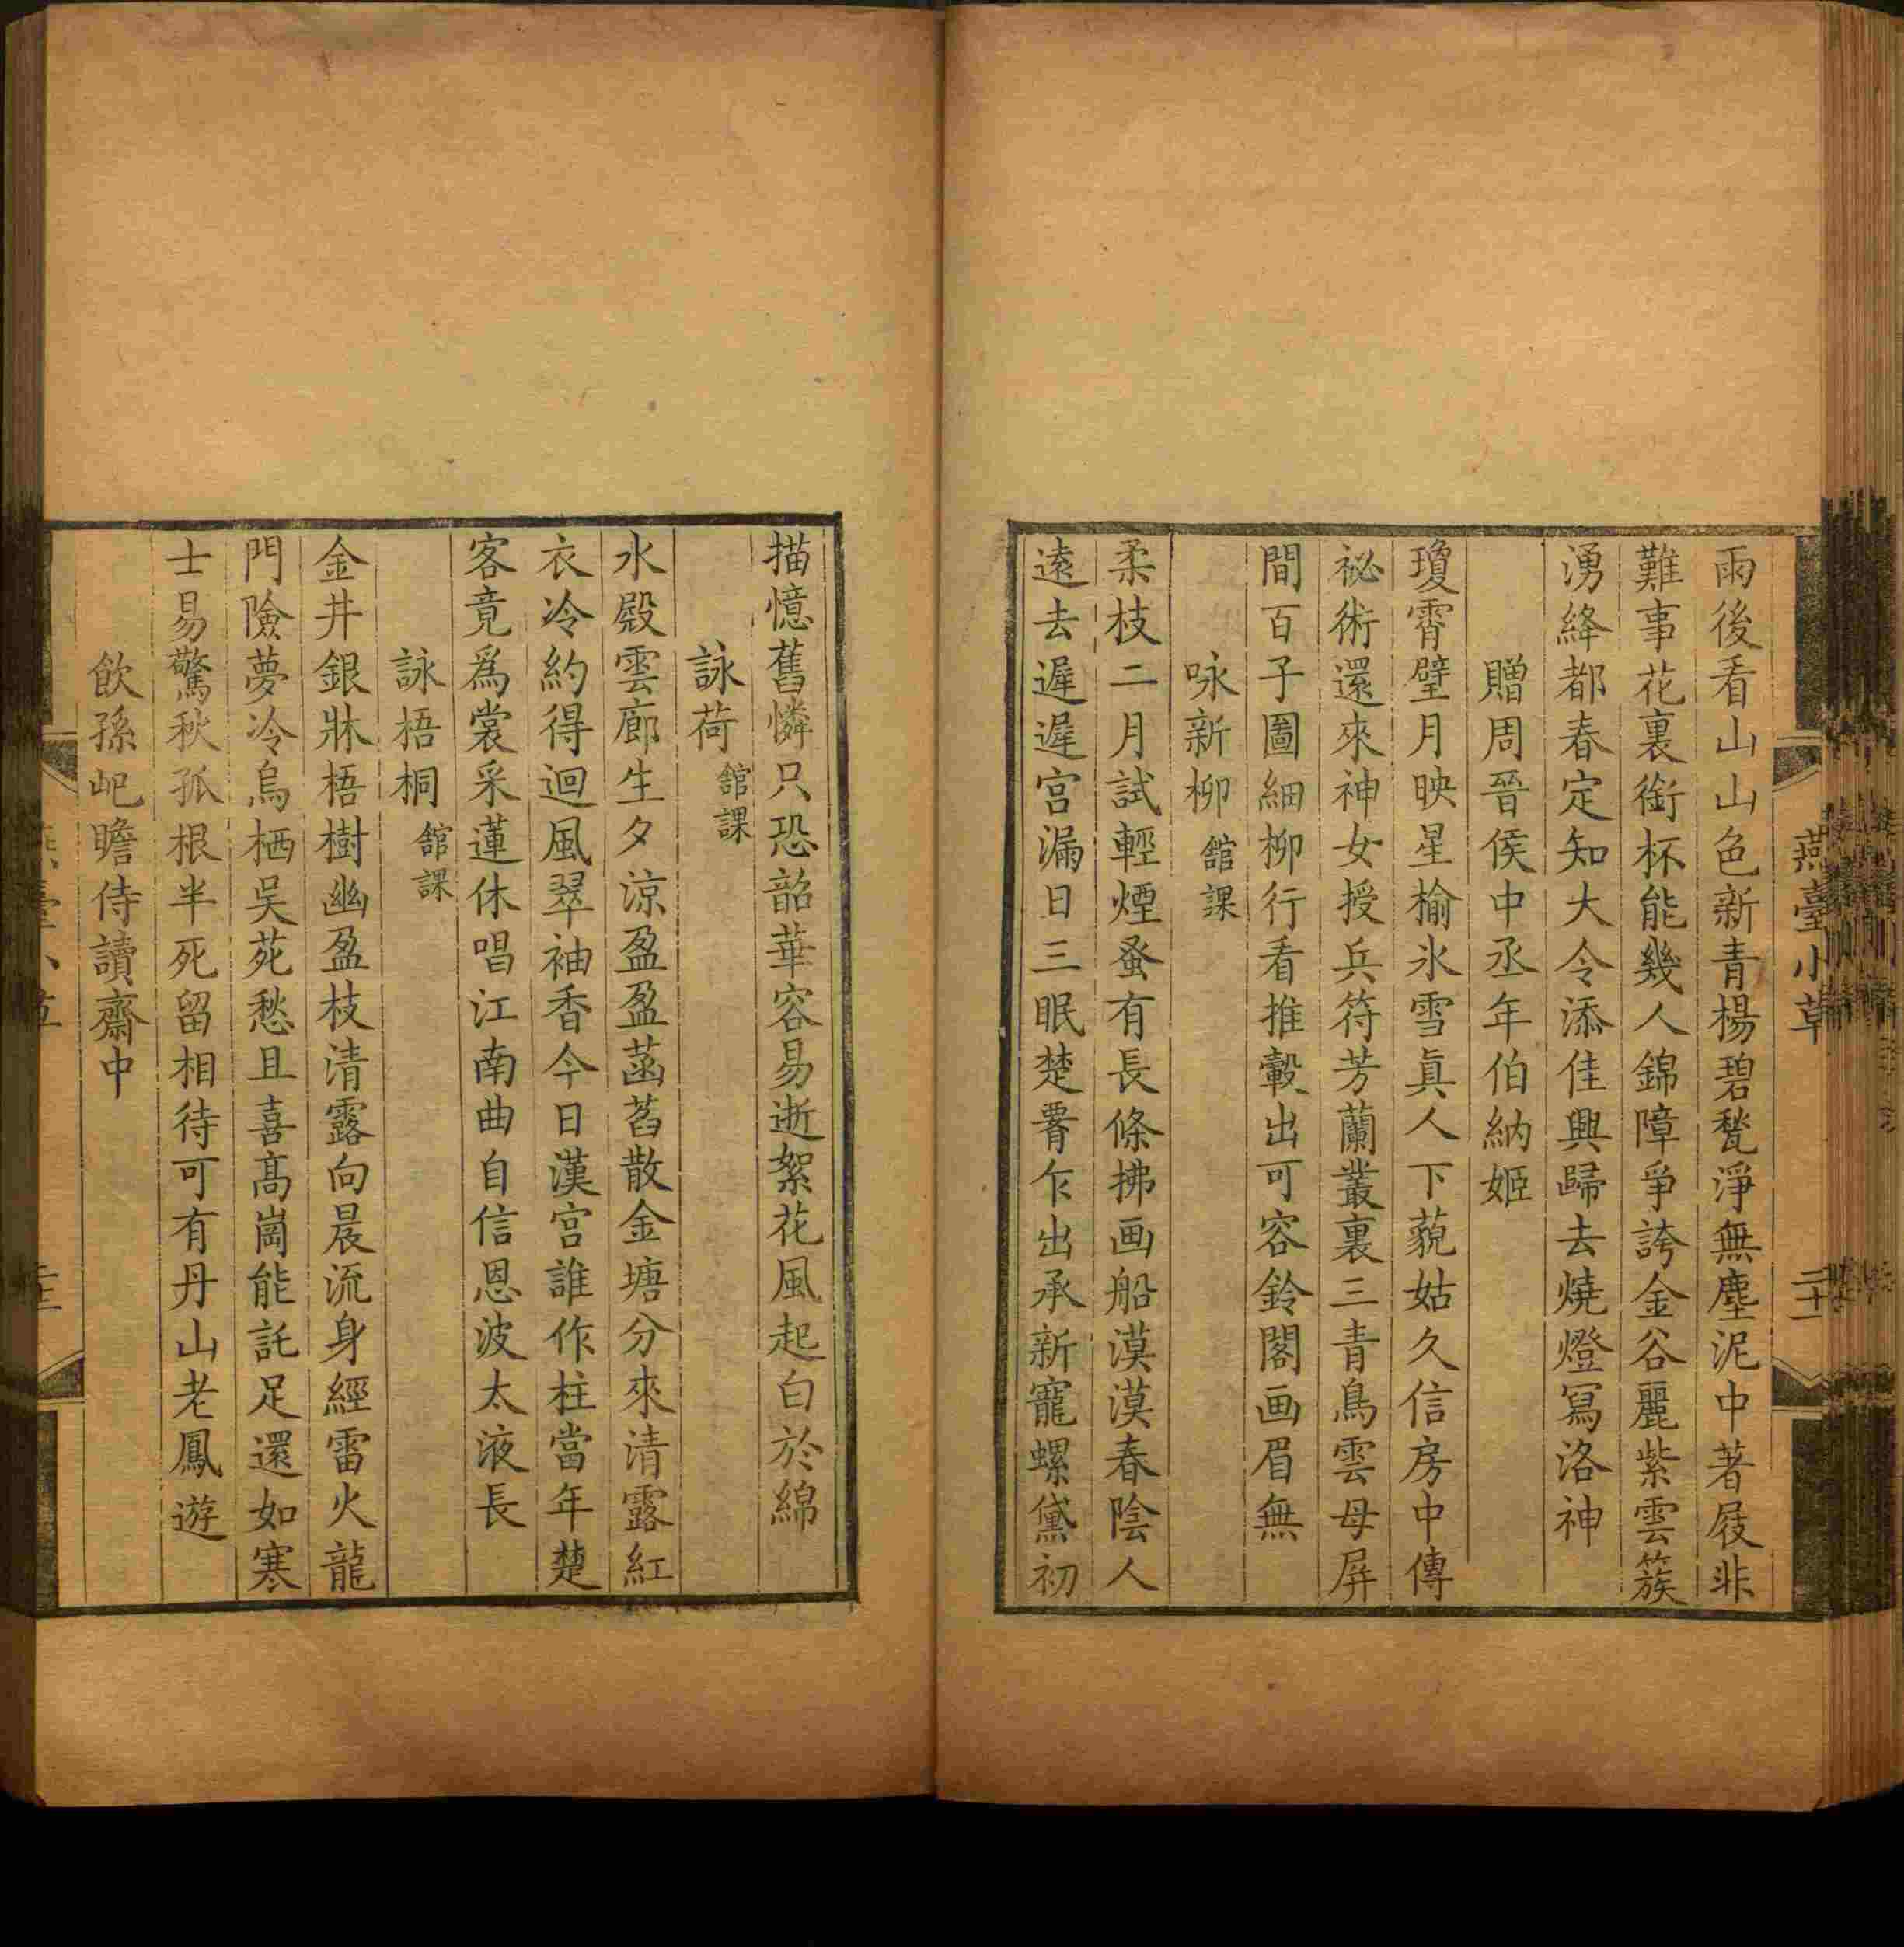 燕臺小草
二十一
雨後看山山色新青楊碧甃淨無塵泥中著屐非
難事花裏銜杯能幾人錦障爭誇金谷麗紫雲簇
湧絳都春定知大令添佳興歸去燒燈寫洛神
贈周晉侯中丞年伯納姬
瓊霄璧月映星榆氷雪眞人下藐姑久信房中傳
祕術還來神女授兵符芳蘭叢裏三青鳥雲母屏
間百子圖細柳行看推轂出可容鈴閣画眉無
咏新柳 舘課
柔枝二月試輕煙蚤有長條拂画船漠漠春陰人
遠去遲遲宮漏日三眠楚䝱乍出承新寵螺黛初
描憶舊憐只恐韶華容易逝絮花風起白於綿
詠荷 舘課
水殿雲廊生夕涼盈盈菡萏散金塘分來清露紅
衣冷約得迴風翠袖香今日漢宮誰作柱當年楚
客竟爲裳采蓮休唱江南曲自信恩波太液長
詠梧桐 舘課
金井銀牀梧樹幽盈枝清露向晨流身經雷火龍
門險夢冷烏栖吳苑愁且喜高崗能託足還如寒
士易驚秋孤根半死留相待可有丹山老鳳遊
飲孫屺瞻侍讀齋中